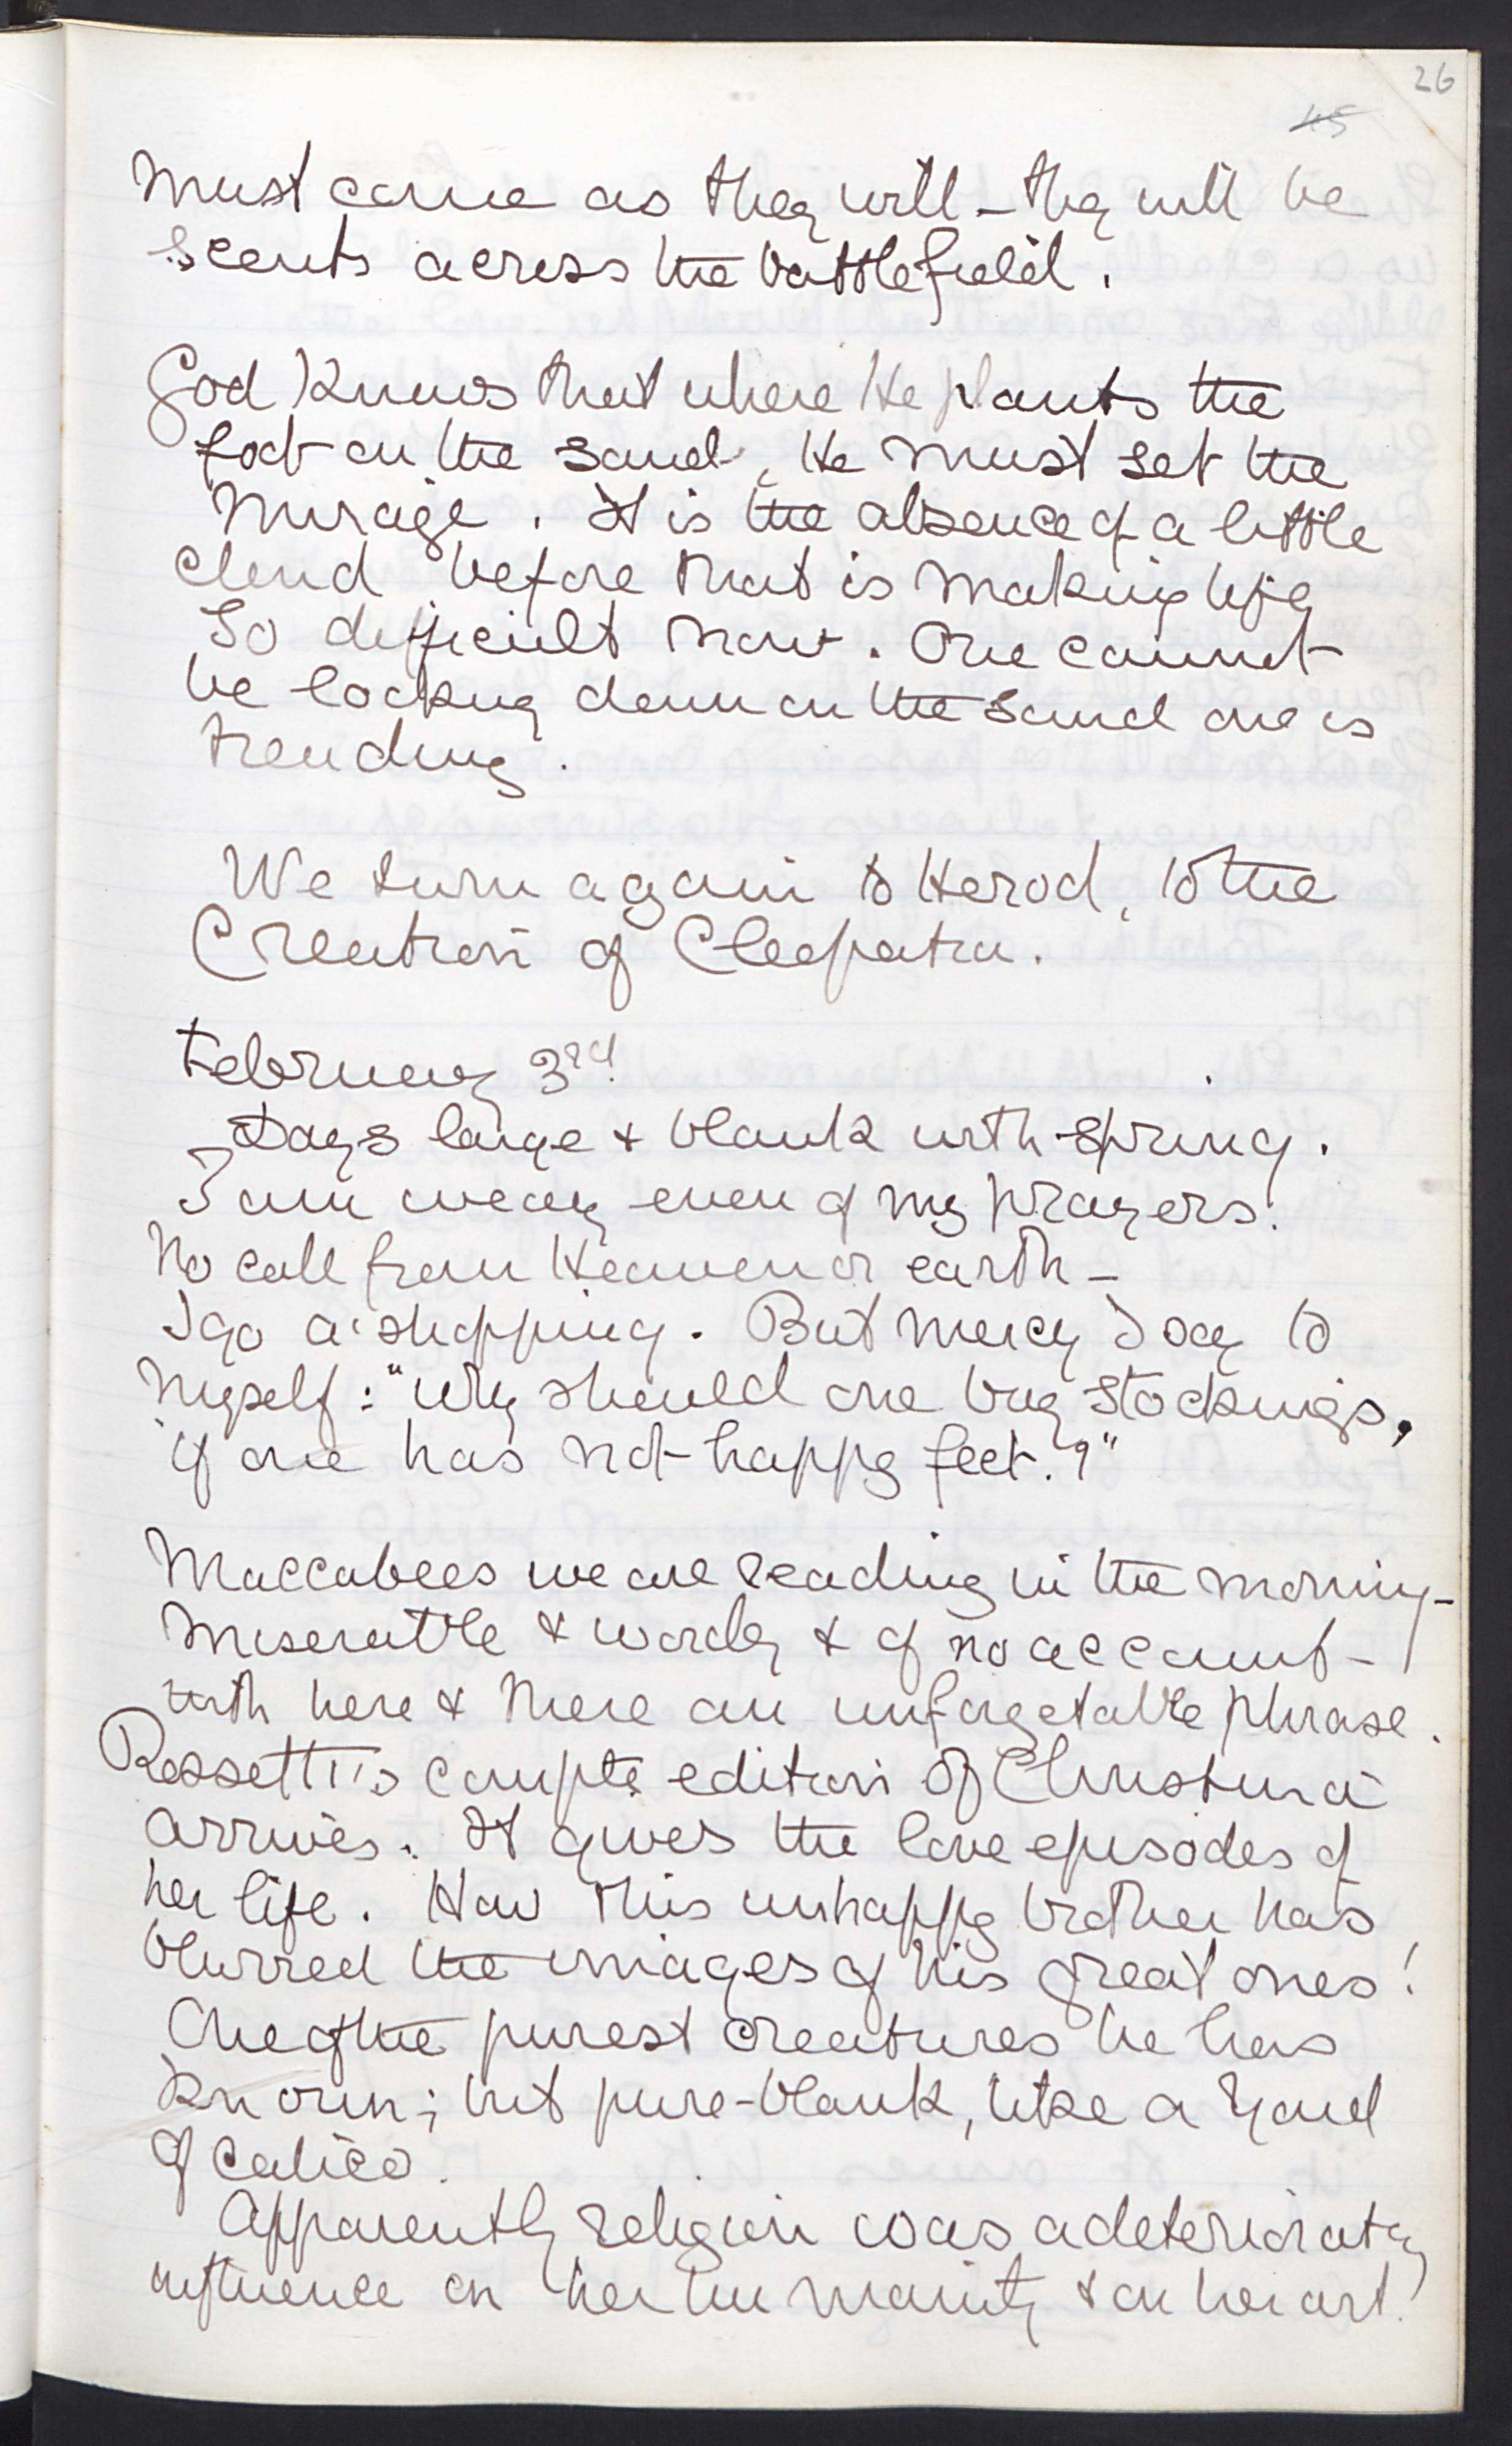 26
45
must come as they will – they will be
scents across the battlefield.
God knows that where He plants the
foot on the sand, He must set the
mirage. It is the absence of a little
cloud before that is making life
so difficult now. One cannot
be looking down on the sand one is
treading.
We turn again to Herod, to the
Creation of Cleopatra.
February 3rd.
Days large & blank with spring.
I am weary even of my prayers.
No call from Heaven or earth –
I go a'shopping. But mercy I say to
myself: "Why should one buy stockings,
if one has not happy feet.?"
Maccabees we are reading in the morning –
miserable & wordy & of no account –
with here & there an unforgetable phrase.
Rossetti's compte edition of Christina
arrives. It gives the love episodes of
her life. How this unhappy brother has
blurred the images of his great ones!
One of the purest creatures he has
known; but pure-blank, like a yard
of calico.
Apparently religion was a deterioratg
influence on her humanity & on her art!